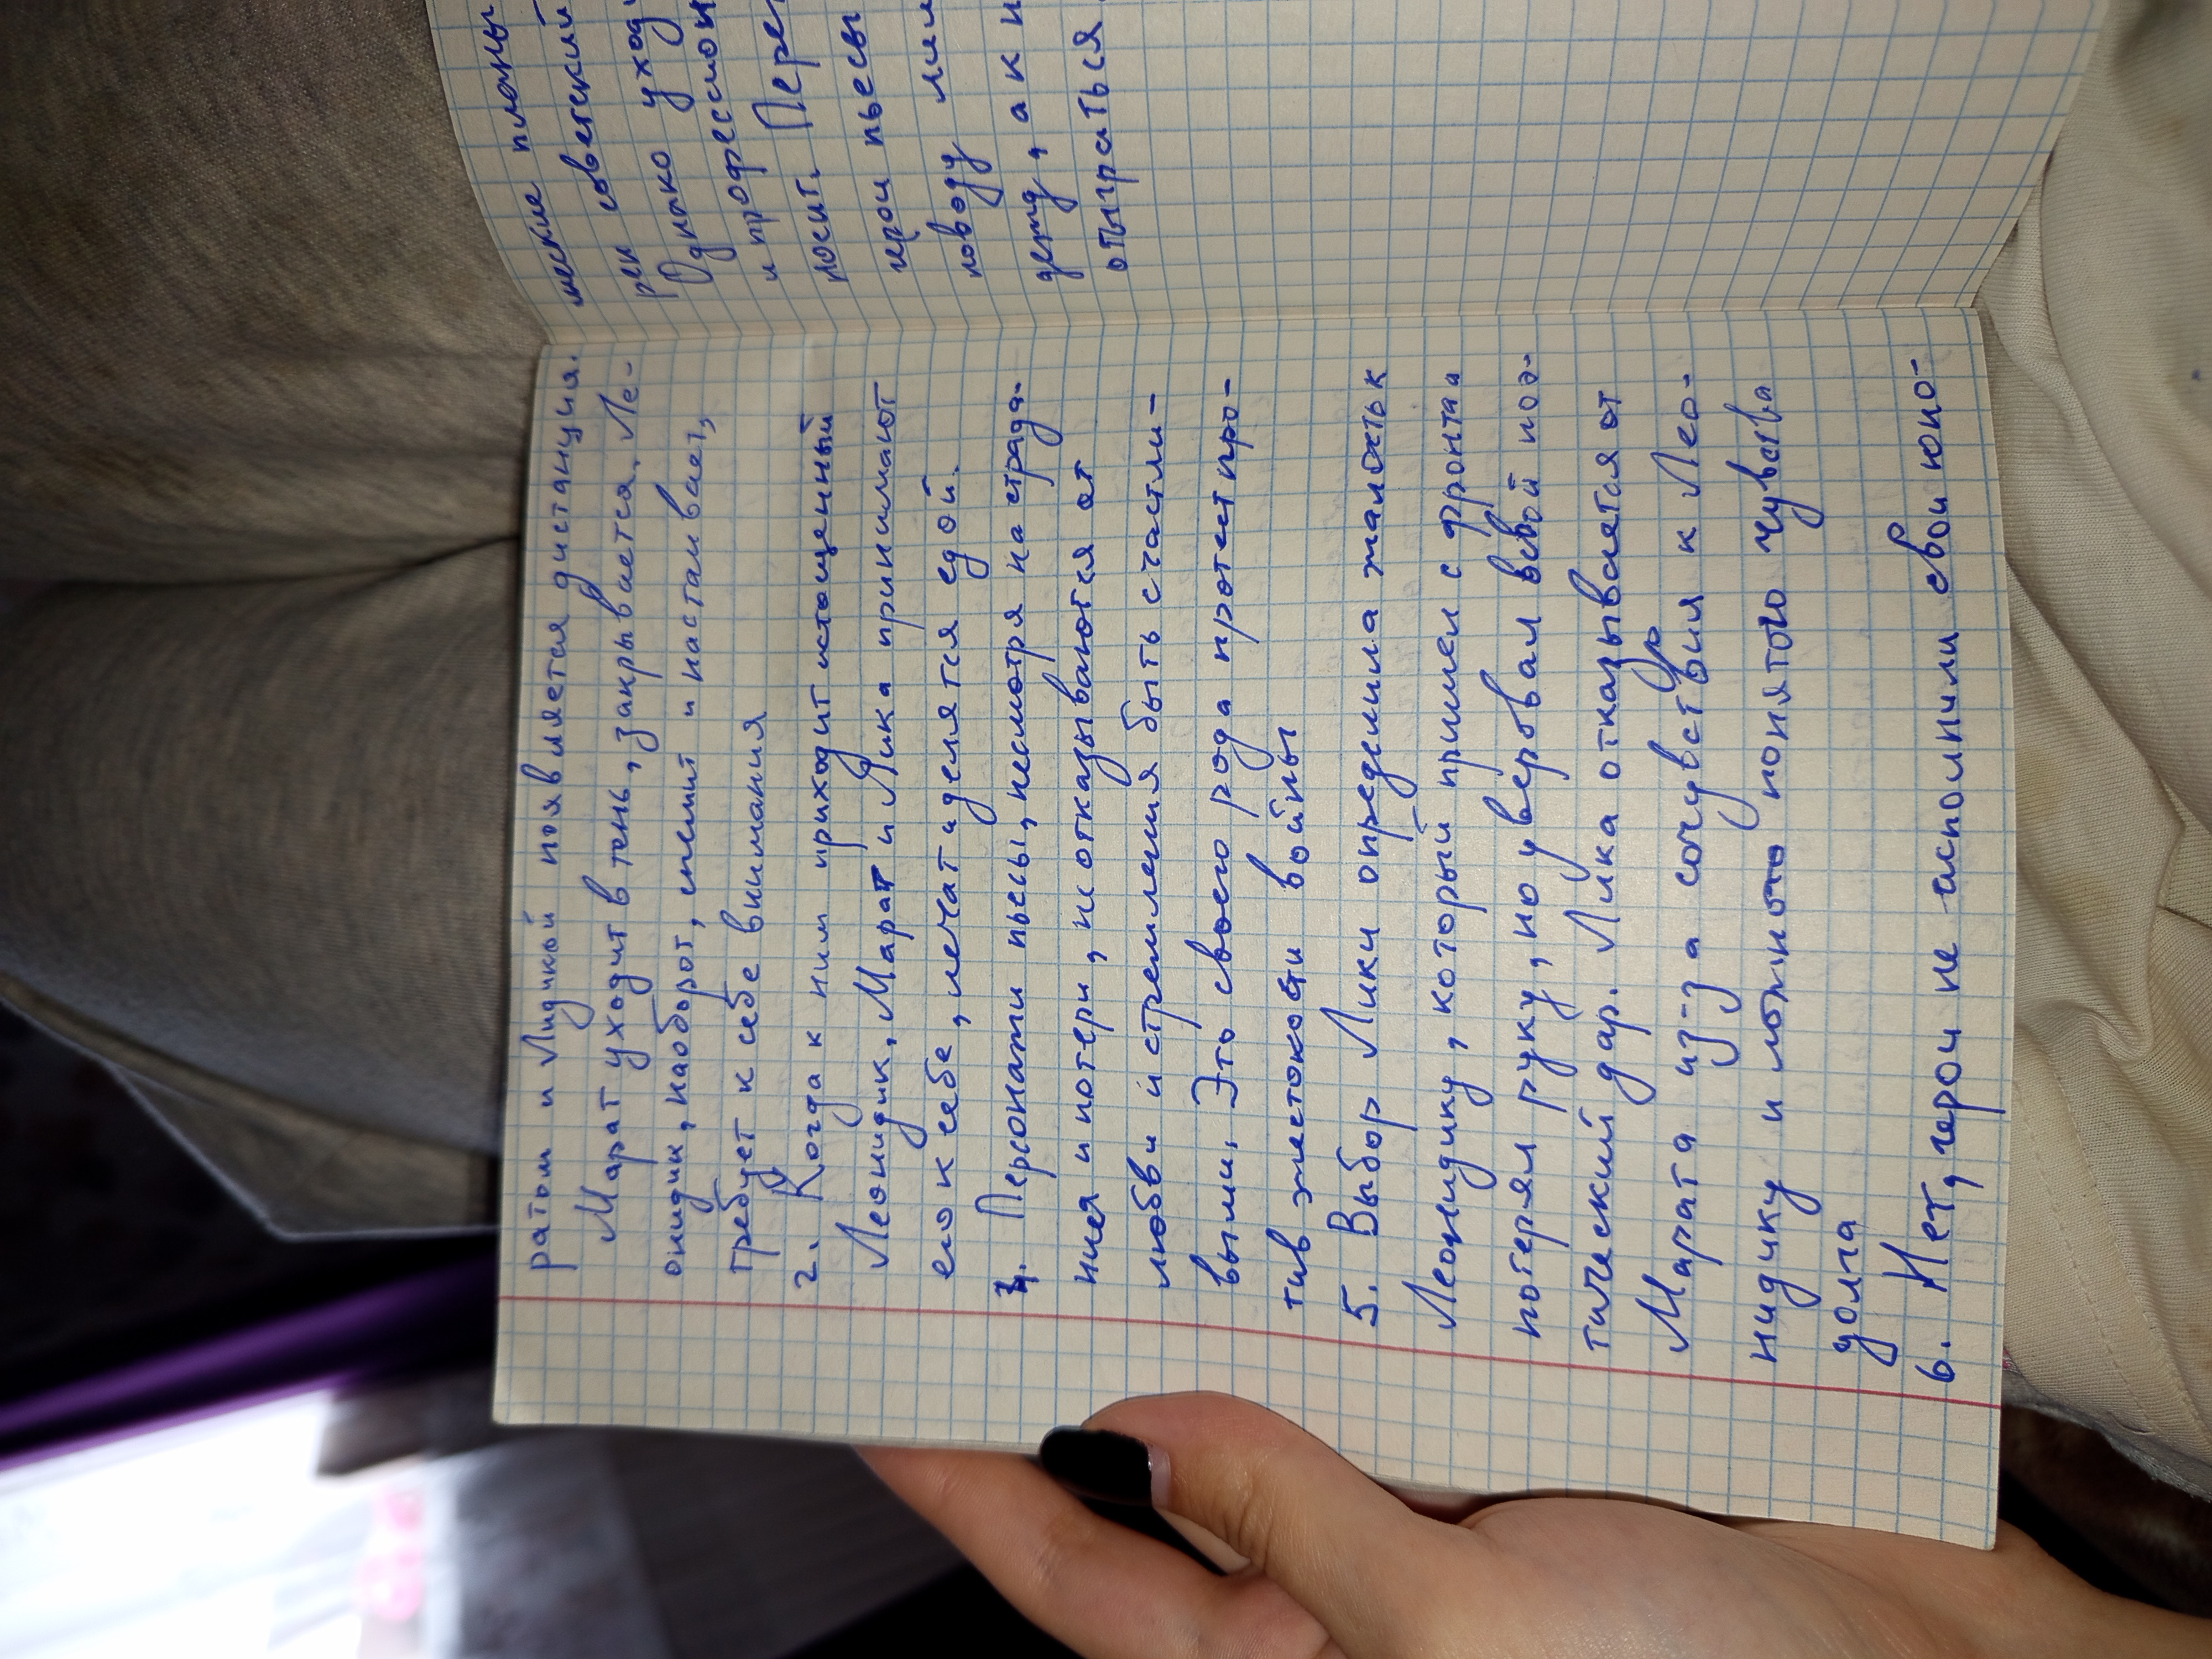 ратом и Лидикой появляется дистанция.
Марат уходит в тень, закрывается. Ле-
онидик, наоборот, спешит и настаивает,
требует к себе внимания
2. Когда к ним приходит истощенный
Леонидик, Марат и Лика принимают
его к себе, лечат и делятся едой.
4. Персонажи пьесы, несмотря на страда-
ния и потери, не отказываются от
любви и стремления быть счастли-
выми. Это своего рода протест про-
тив жестокости войны
5. Выбор Лики определила жалость к
Леонидику, который пришел с фронта
потерял руку, но уверовал в свой поэ-
тический дар. Лика отказывается от
Марата из-за сочувствия к Лео-
нидику и ложно понятого чувства
долга
6. Нет, герои не исполнили свои юно-
шеские планы
советский
рен уход
Однако
и професси
носит. Пере
герои пьесы
поводу
дежд, а к и
отыграться